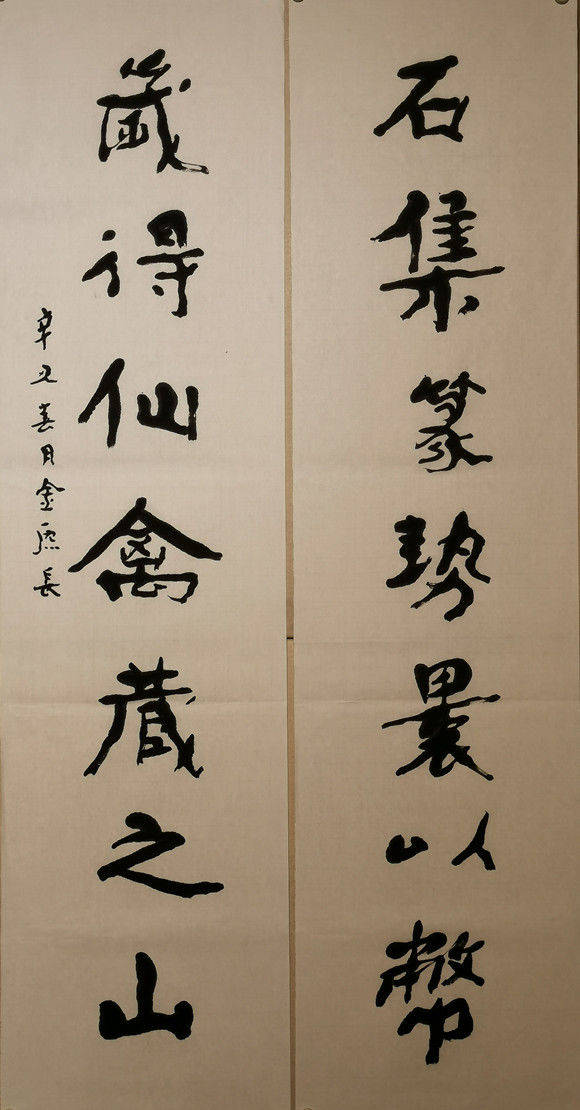 石集篆勢囊以幣
箴得仙禽藏之山
辛丑春月金熙長